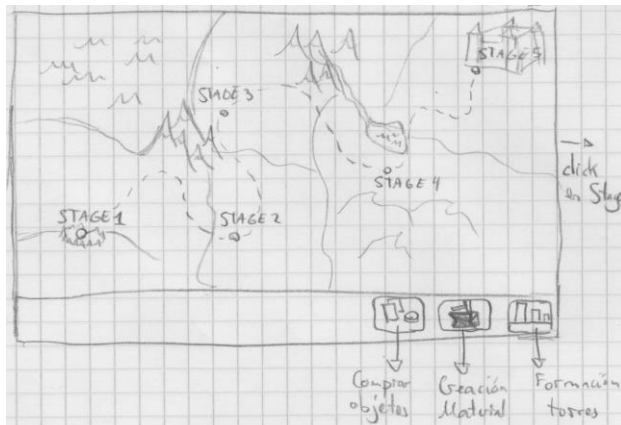 STAGE 5
STAGE 3
STAGE 4
STAGE 1
STAGE 2
click
en Stage
Comprar
objetos
Creación
Material
Formación
torres